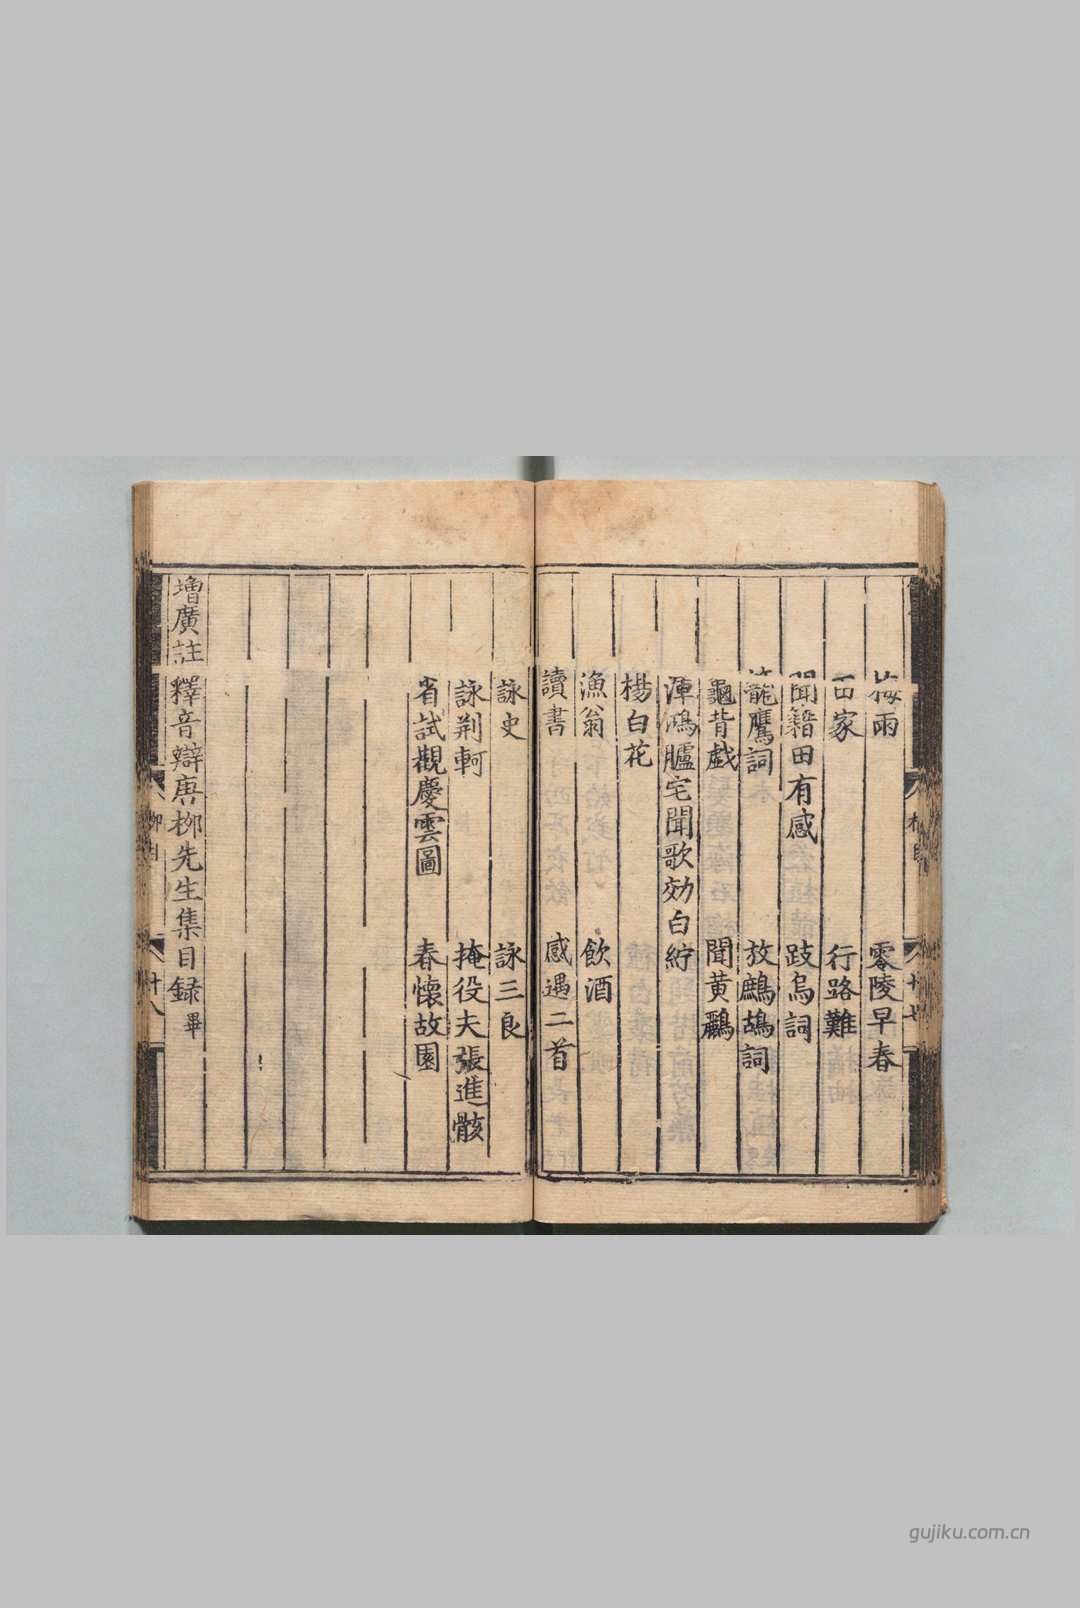 梅雨 零陵早春
田家 行路難
聞籍田有感 跂烏詞
籠鷹詞 放鷓鴣詞
龜背戲 聞黃鸝
渾鴻臚宅聞歌効白紵
楊白花
漁翁 飲酒
讀書 感遇二首
十七
詠史 詠三良
詠荆軻 掩役夫張進骸
省試觀慶雲圖 春懷故園
増廣註釋音辯唐柳先生集目録畢
柳目 十八
gujiku.com.cn